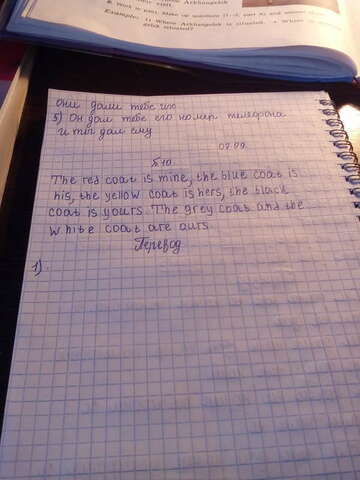 8. Work in pairs. Make up questions (1–3, part A) and answer
Example: 1) Where Arkhangelsk is situated. → Where is
gelsk situated?
Они дали тебе их
5) Он дал тебе его номер телефона
и ты дал ему
07.09.
The red coat is mine, the blue coat is
his, the yellow coat is hers, the black
coat is yours. The grey coat and the
white coat are ours
Перевод
1).